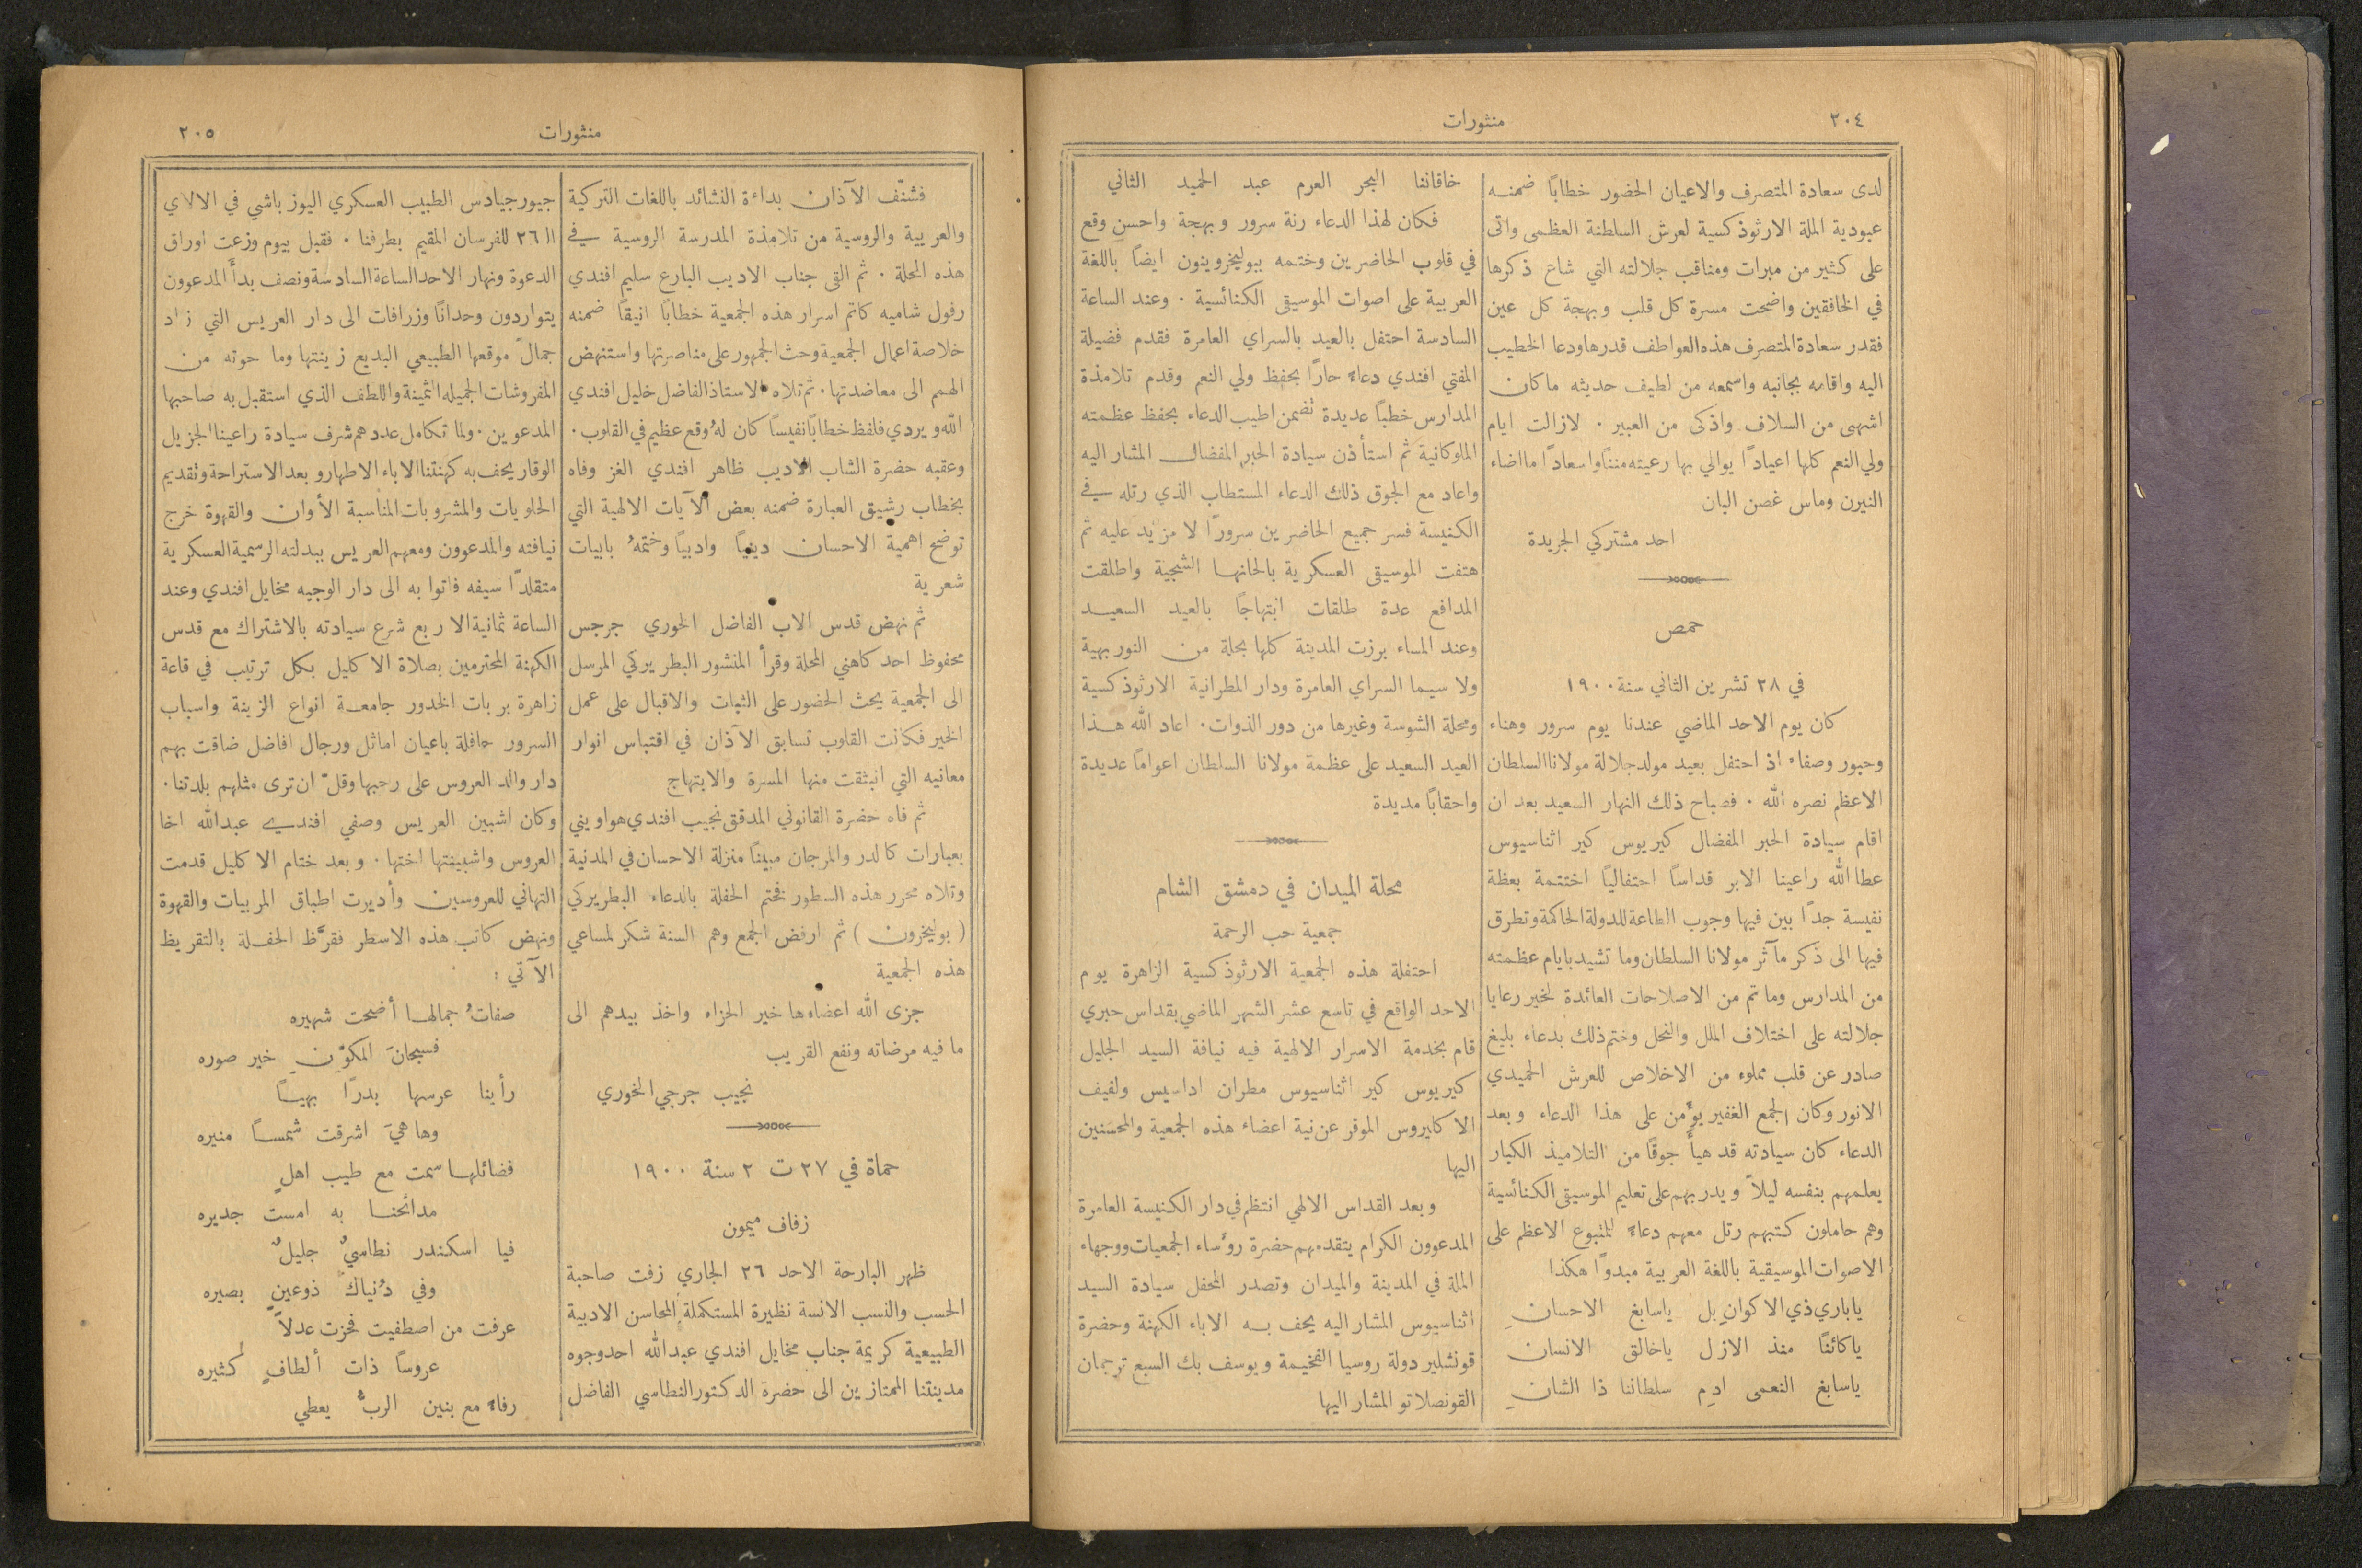 ٢٠٤
منثورات
لدى سعادة المتصرف والاعيان الحضور خطابًا ضمنه
عبودية الملة الارثوذكسية لعرش السلطنة العظمى واتى
على كثير من مبرات ومناقب جلالته التي شاع ذكرها
في الخافقين واضحت مسرة كل قلب وبهجة كل عين
فقدر سعادة المتصرف هذه العواطف قدرها ودعا الخطيب
اليه واقامه بجانبه واسمعه من لطيف حديثه ماكان
اشهى من السلاف واذكى من العبير ٠ لازالت ايام
ولي النعم كلها اعيادًا يوالي بها رعيته مننًا واسعادًا ما اضاء
النيرن وماس غصن البان
احد مشتركي الجريدة
حمص
في ٢٨ تشرين الثاني سنة ١٩٠٠
كان يوم الاحد الماضي عندنا يوم سرور وهناء
وحبور وصفاء اذ احتفل بعيد مولد جلالة مولانا السلطان
الاعظم نصره الله ٠ فصباح ذلك النهار السعيد بعد ان
اقام سيادة الحبر المفضال كيريوس كير اثناسيوس
عطا الله راعينا الابر قداسًا احتفاليًا اختتمة بعظة
نفيسة جدًا بين فيها وجوب الطاعة للدولة الحاكمة وتطرق
فيها الى ذكر مآثر مولانا السلطان وما تشيد بايام عظمته
من المدارس وما تم من الاصلاحات العائدة لخير رعايا
جلالته على اختلاف الملل والنحل وختم ذلك بدعاء بليغ
صادر عن قلب مملوء من الاخلاص للعرش الحميدي
الانور وكان الجمع الغفير يؤمن على هذا الدعاء وبعد
الدعاء كان سيادته قد هيأ جوقًا من التلاميذ الكبار
يعلمهم بنفسه ليلاً ويدربهم على تعليم الموسيقى الكنائسية
وهم حاملون كتبهم رتل معهم دعاءً للمتبوع الاعظم على
الاصوات الموسيقية باللغة العربية مبدوًا هكذا
ياباري ذي الاكوانِ بل ياسابغ الاحسانِ
ياكائنًا منذ الازل ياخالق الانسان
ياسابغ النعمى ادِم سلطاننا ذا الشانِ
خاقاننا البحر العرم عبد الحميد الثاني
فكان لهذا الدعاء رنة سرور وبهجة واحسن وقع
في قلوب الحاضرين وختمه ببوليخرونيون ايضًا باللغة
العربية على اصوات الموسيقى الكنائسية ٠ وعند الساعة
السادسة احتفل بالعيد بالسراي العامرة فقدم فضيلة
المفتي افندي دعاءً حارًّا بحفظ ولي النعم وقدم تلامذة
المدارس خطبًا عديدة تضمن اطيب الدعاء بحفظ عظمته
الملوكانية ثم استأذن سيادة الحبر المفضال المشار اليه
واعاد مع الجوق ذلك الدعاء المستطاب الذي رتله في
الكنيسة فسر جميع الحاضرين سرورًا لا مزيد عليه ثم
هتفت الموسيقى العسكرية بالحانها الشجية واطلقت
المدافع عدة طلقات ابتهاجًا بالعيد السعيد
وعند المساء برزت المدينة كلها بحلة من النور بهية
ولا سيما السراي العامرة ودار المطرانية الارثوذكسية
ومحلة الشوسة وغيرها من دور الذوات ٠ اعاد الله هذا
العيد السعيد على عظمة مولانا السلطان اعوامًا عديدة
واحقابًا مديدة
محلة الميدان في دمشق الشام
جمعية حب الرحمة
احتفلة هذه الجمعية الارثوذكسية الزاهرة يوم
الاحد الواقع في تاسع عشر الشهر الماضي بقداس حبري
قام بخدمة الاسرار الالهية فيه نيافة السيد الجليل
كيريوس كير اثناسيوس مطران اداسيس ولفيف
الاكليروس الموقر عن نية اعضاء هذه الجمعية والمحسنين
اليها
وبعد القداس الالهي انتظم في دار الكنيسة العامرة
المدعوون الكرام يتقدمهم حضرة رؤساء الجمعيات ووجهاء
الملة في المدينة والميدان وتصدر المحفل سيادة السيد
اثناسيوس المشار اليه يحف به الاباء الكهنة وحضرة
قونشلير دولة روسيا الفخيمة ويوسف بك السبع ترجمان
القونصلاتو المشار اليها
منثورات
٢٠٥
فشنّف الآذان بداءة النشائد باللغات التركية
والعربية والروسية من تلامذة المدرسة الروسية في
هذه المحلة ٠ ثم القى جناب الاديب البارع سليم افندي
رفول شاميه كاتم اسرار هذه الجمعية خطابًا انيقًا ضمنه
خلاصة اعمال الجمعية وحث الجمهور على مناصرتها واستنهض
الهمم الى معاضدتها ٠ ثم تلاه الاستاذ الفاضل خليل افندي
الله ويردي فلفظ خطابًا نفيسًا كان لهُ وقع عظيم في القلوب ٠
وعقبه حضرة الشاب الاديب ظاهر افندي الغز وفاه
بخطاب رشيق العبارة ضمنه بعض الآيات الالهية التي
توضح اهمية الاحسان دينيًا وادبيًا وختمهُ بابيات
شعرية
ثم نهض قدس الاب الفاضل الخوري جرجس
محفوظ احد كاهني المحلة وقرأ المنشور البطريركي المرسل
الى الجمعية يحث الحضور على الثبات والاقبال على عمل
الخير فكانت القلوب تسابق الآذان في اقتباس انوار
معانيه التي انبثقت منها المسرة والابتهاج
ثم فاه حضرة القانوني المدقق نجيب افندي هواويني
بعبارات كالدر والمرجان مبينًا منزلة الاحسان في المدنية
وتلاه محرر هذه السطور فختم الحفلة بالدعاء البطريركي
( بوليخرون ) ثم ارفض الجمع وهم السنة شكر لمساعي
هذه الجمعية
جزى الله اعضاءها خير الجزاء واخذ بيدهم الى
ما فيه مرضاته ونفع القريب
نجيب جرجي الخوري
حماة في ٢٧ ت ٢ سنة ١٩٠٠
زفاف ميمون
ظهر البارحة الاحد ٢٦ الجاري زفت صاحبة
الحسب والنسب الانسة نظيرة المستكملة المحاسن الادبية
الطبيعية كريمة جناب مخايل افندي عبدالله احد وجوه
مدينتنا الممتازين الى حضرة الدكتور النطاسي الفاضل
جيورجيادس الطبيب العسكري اليوز باشي في الالاي
الـ ٢٦ للفرسان المقيم بطرفنا ٠ فقبل بيوم وزعت اوراق
الدعوة ونهار الاحد الساعة السادسة ونصف بدأ المدعوون
يتواردون وحدانًا وزرافات الى دار العريس التي زاد
جمالَ موقعها الطبيعي البديع زينتها وما حوته من
المفروشات الجميله الثمينة واللطف الذي استقبل به صاحبها
المدعوين ٠ ولما تكامل عددهم شرف سيادة راعينا الجزيل
الوقار يحف به كهنتنا الاباء الاطهار وبعد الاستراحة وتقديم
الحلويات والمشروبات المناسبة الأوان والقهوة خرج
نيافته والمدعوون ومعهم العريس ببدلته الرسمية العسكرية
متقلدًا سيفه فاتوا به الى دار الوجيه مخايل افندي وعند
الساعة ثمانية الا ربع شرع سيادته بالاشتراك مع قدس
الكهنة المحترمين بصلاة الاكليل بكل ترتيب في قاعة
زاهرة بربات الخدور جامعة انواع الزينة واسباب
السرور حافلة باعيان اماثل ورجال افاضل ضاقت بهم
دار والد العروس على رحبها وقلّ ان ترى مثلهم بلدتنا ٠
وكان اشبين العريس وصفي افندي عبدالله اخا
العروس واشبينتها اختها ٠ وبعد ختام الاكليل قدمت
التهاني للعروسين وأديرت اطباق المربيات والقهوة
ونهض كاتب هذه الاسطر فقرَّظ الحفلة بالتقريظ
الآتي :
صفاتُ جمالها أضحت شهيره
فسبحانَ المكوّنِ خير صوره
رأينا عرسها بدرًا بهيًا
وها هيَ اشرقت شمسًا منيره
فضائلها سمت مع طيب اهلٍ
مدائحنا به امست جديره
فيا اسكندر نطاسيٌ جليلٌ
وفي دُنياك ذوعينٍ بصيره
عرفت من اصطفيت فحزت عدلاً
عروسًا ذات ألطافٍ كثيره
رفاءً مع بنين الربُّ يعطي